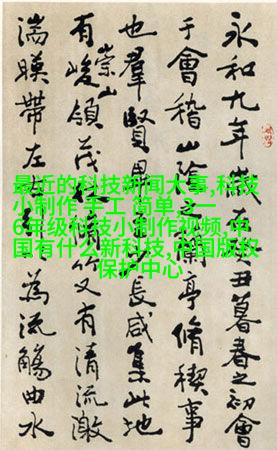 永和九年歲在癸丑暮春之初會
于會稽山陰之蘭亭脩稧事
也羣賢長咸集此地
有崇山峻領茂脩竹又有清流激
湍暎帶左為流觴曲水
最近的科技新闻大事,科技
小制作 手工 简单,3一
6年级科技小制作视频,中
国有什么新科技,中国版权
保护中心